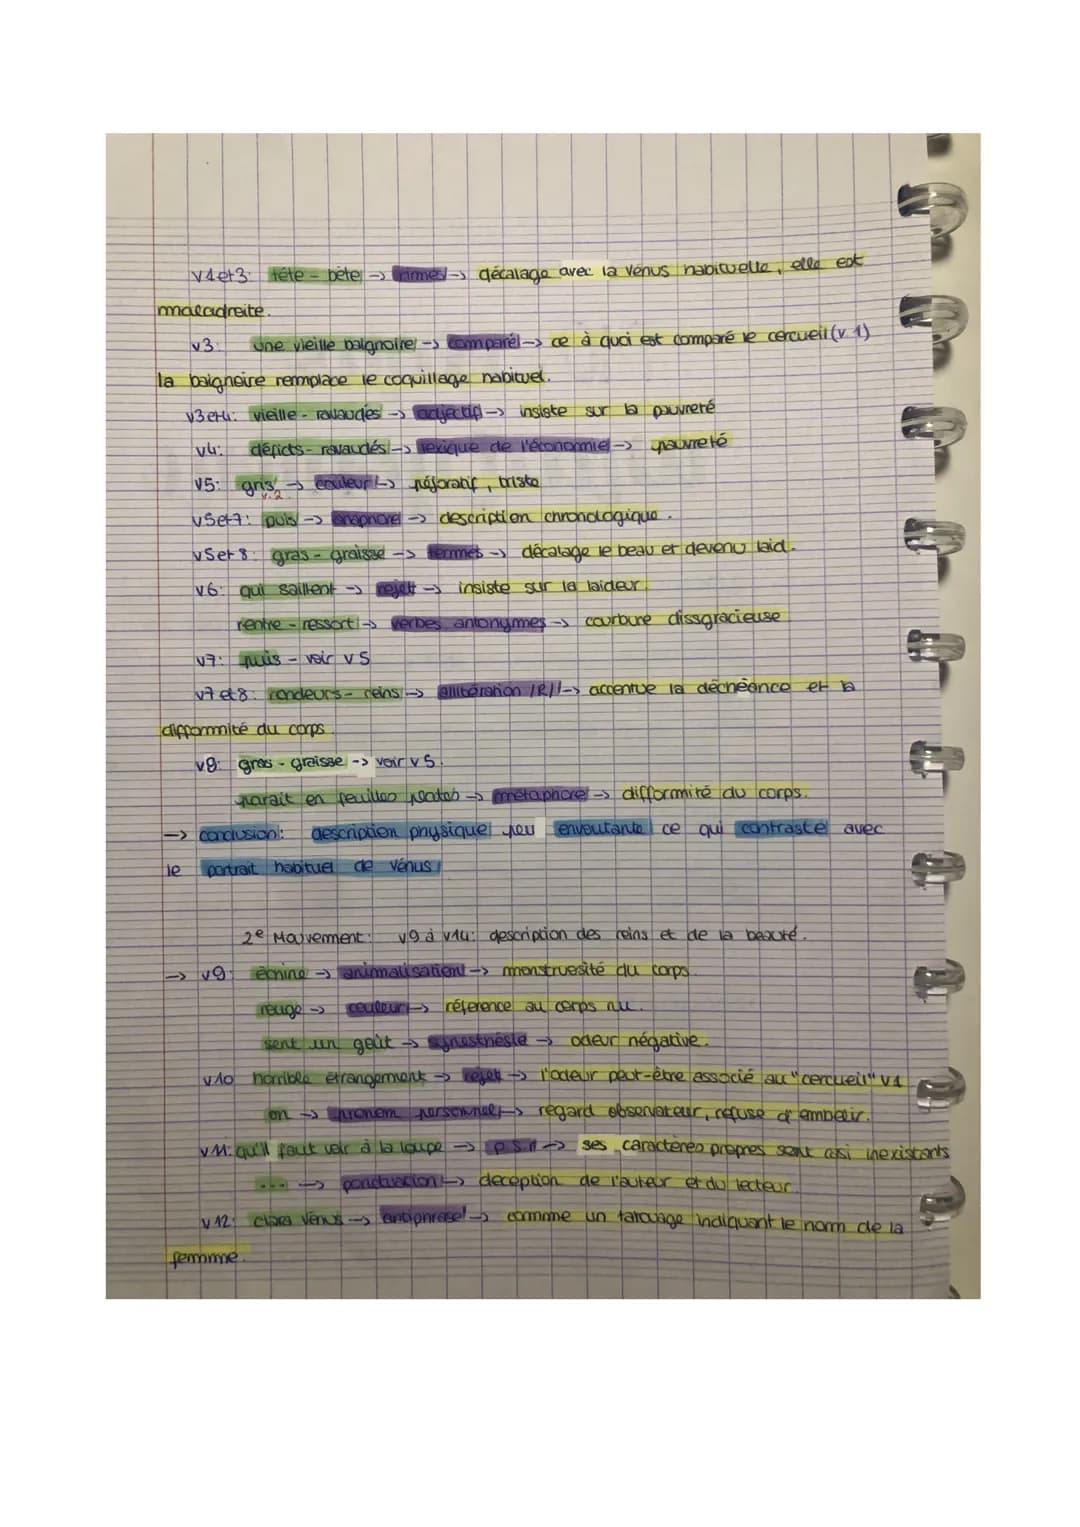 v1et3: tête - bête -> rimes -> décalage avec la vénus habituelle, elle est
maladroite.
v3: une vieille baignoire -> comparé -> ce à quoi est comparé le cercueil (v.1)
la baignoire remplace le coquillage habituel.
v3et4: vieille - ravaudés -> adjectif -> insiste sur la pauvreté
v4: déficits - ravaudés -> lexique de l'économie -> pauvreté
v5: gris -> couleur -> péjoratif, triste
v.2
v5et7: puis -> anaphore -> description chronologique.
v5et8: gras - graisse -> termes -> décalage le beau et devenu laid.
v6: qui saillent -> rejet -> insiste sur la laideur.
rentre - ressort -> verbes antonymes -> courbure dissgracieuse
v7: puis - voir v5
v7 et 8: rondeurs - reins -> allitération /R/ -> accentue la déchéance et la
difformité du corps.
v8: gras - graisse -> voir v5.
parait en feuilles plates -> métaphore -> difformité du corps.
-> conclusion: description physique peu envoutante ce qui contraste avec
le portrait habituel de vénus
2e Mouvement: v9 à v14: description des reins et de la beauté.
-> v9: échine -> animalisation -> monstruosité du corps
rouge -> couleur -> référence au corps nu.
sent un goût -> synesthésie -> odeur négative.
v10 horrible étrangement -> rejet -> l'odeur peut-être associé au "cercueil" v1
on -> pronom personnel -> regard observateur, refuse d'embellir.
v11: qu'il faut voir à la loupe -> P.S.R -> ses caractères propres sont casi inexistants
... -> ponctuation -> deception de l'auteur et du lecteur.
v12: clara vénus -> antiphrase -> comme un tatouage indiquant le nom de la
femme.